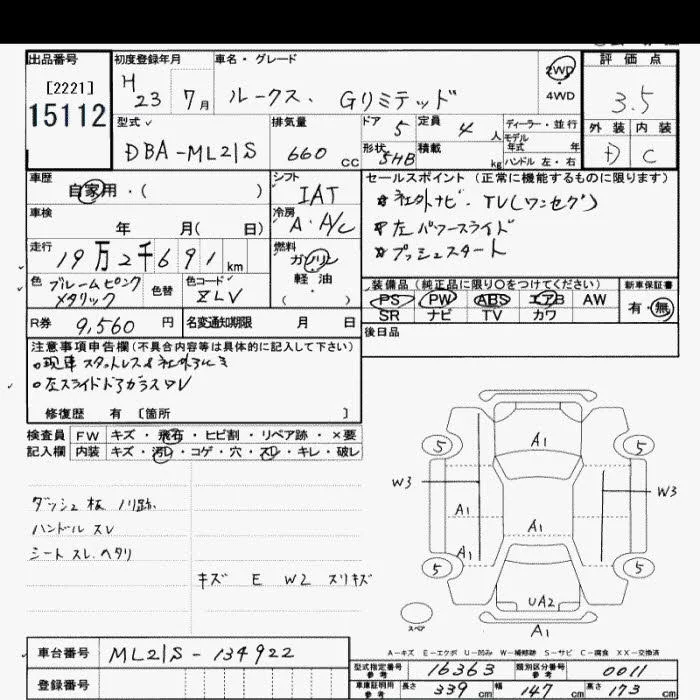 出品番号 初度登録年月 車名・グレード 2WD 評価点
[2221] H 23 7月 ルークス. Gリミテッド 4WD 3.5
15112
型式 排気量 ドア 5 定員 4人 ディーラー・並行 外装 内装
モデル年式 年
DBA-ML21S 660cc 形状 5HB 積載 kg ハンドル 左・右 D C
車歴 シフト セールスポイント (正常に機能するものに限ります)
自家用・( ) IAT 社外ナビ. TV(ワンセグ)
車検 冷房 左パワースライド
年 月( 日) A・A/C プッシュスタート
走行 燃料
19万2千691km ガソリン
色 色替 色コード 軽油 装備品 (純正品に限り○をつけてください) 新車保証書
ブルームピンクメタリック ZLV ( ) PS PW ABS エアB AW 有・無
SR ナビ TV カワ
R券 9,560円 名変通知期限 月 日 後日品
注意事項申告欄(不具合内容等は具体的に記入して下さい)
現車スタットレス&社外アルミ
左スライドドアガラススレ
修復歴 有 〔箇所 〕
検査員 FW キズ・飛石・ヒビ割・リペア跡・×要
記入欄 内装 キズ・汚レ・コゲ・穴・スレ・キレ・破レ
A1
5 5
W3 W3
A1
A1
A1
5 5
UA2
スペア
A1
ダッシュ板 ノリ跡.
ハンドル スレ
シート スレ.ヘタリ
キズ E W2 スリキズ
A-キズ E-エクボ U-凹み W-補修跡 S-サビ C-腐食 XX-交換済
車台番号 ML21S-134922
型式指定番号 参考 16363 類別区分番号 参考 0011
登録番号
車庫証明用 参考 長さ 339cm 幅 147cm 高さ 173cm